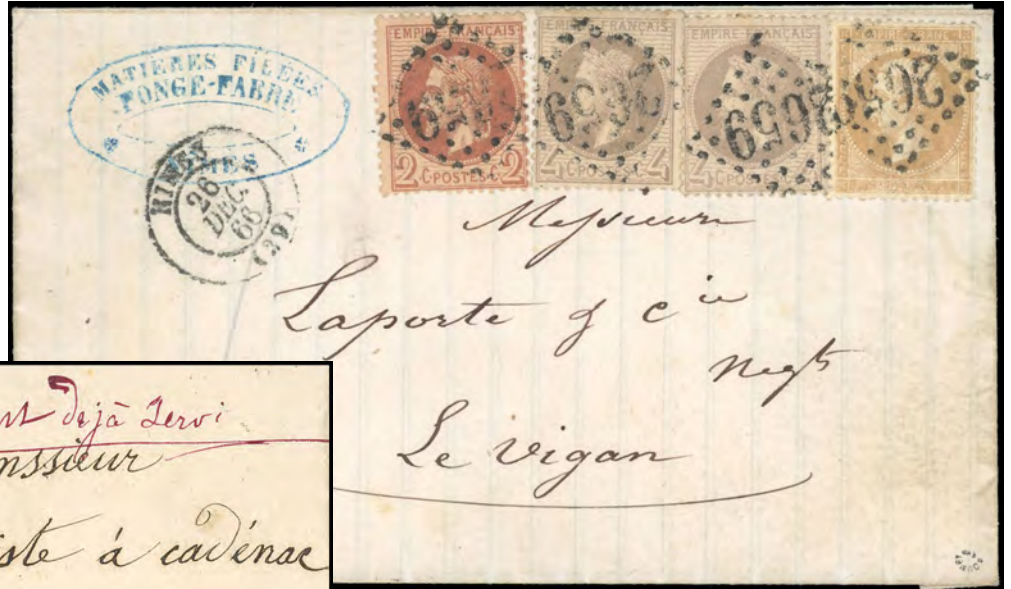 MATIERES FILÉES
FONGE-FABRE
NIMES
26
DEC.
66
(29)
EMPIRE FRANÇAIS
2 C·POSTES·C 2
EMPIRE FRANÇAIS
4 C·POSTES·C 4
EMPIRE FRANÇAIS
4 C·POSTES·C
EMPIRE FRANC
2659
2659
2659
Messieurs
Laporte & Cie
Negts
Le Vigan
déjà servi
à cadénac